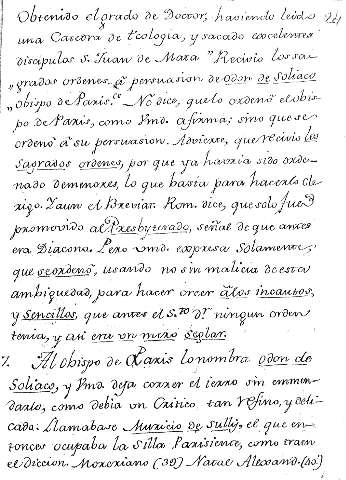 Obtenido el grado de Doctor, haviendo leido
una Catedra de teologia, y sacado excelentes
disipulos S. Juan de Mata "Recivio los sa-
gradas ordenes â persuasion de odon de Soliaco
„obispo de Paris." Nô dice, que lo ordenô el obis-
po de Paris, como Vmd. afirma; sino que se
ordenô â su persuasion. Advierte, que recivio los
Sagrados ordenes, por que ya havria sido orde-
nado de menores, lo que basta para hacerlo cle-
rigo. Y aun el Breviar. Rom. dice, que solo fue
promovido al Presbyterado, señal de que antes
era Diacono. Pero Vmd. expresa Solamente,
que se ordenô, usando no sin malicia de esta
ambiguedad, para hacer creer â los incautos,
y Sencillos, que antes el S.to P.e ningun orden
tenia, y asi era un mero seglar.
7. Al obispo de Paris lo nombra odon de
Soliaco, y Vmd. deja correr el ierro sin emmen-
darlo, como debia un Critico tan refino, y deli-
cado: llamabase Mauricio de Sully, el que en-
tonces ocupaba la Silla Parisiense, como traen
el diccion. Moreriano (39) Natal Alexand. (40)